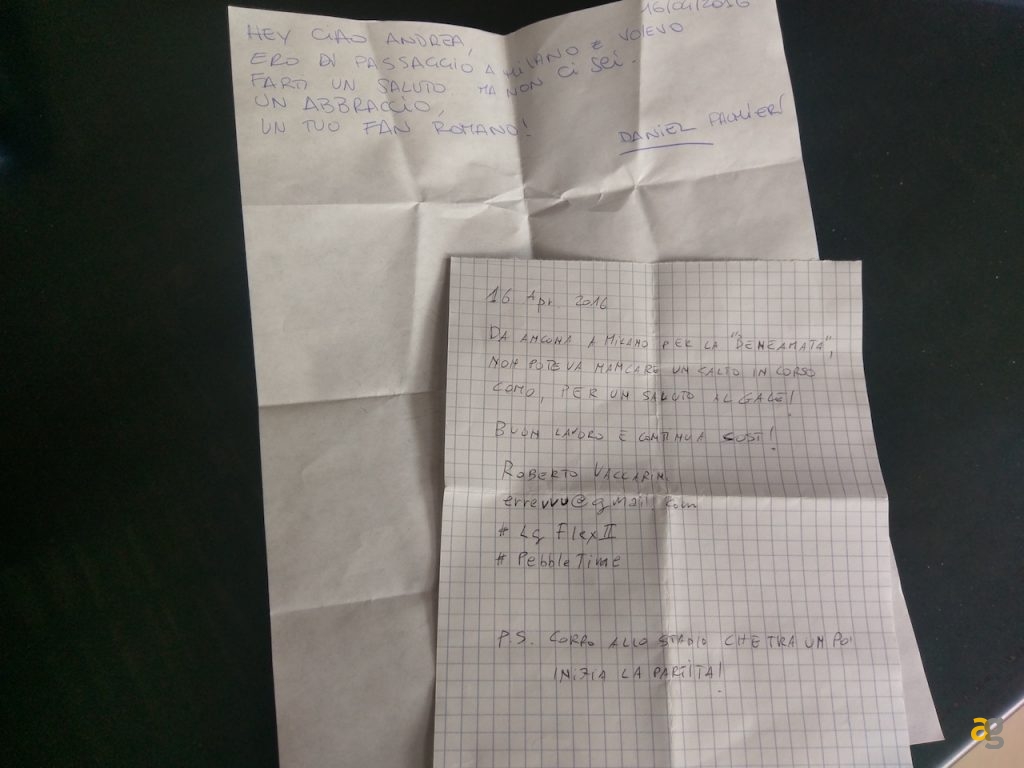 16/04/2016
HEY CIAO ANDREA,
ERO DI PASSAGGIO A MILANO E VOLEVO
FARTI UN SALUTO MA NON CI SEI.
UN ABBRACCIO,
UN TUO FAN ROMANO!
DANIEL PALMIERI
16 Apr. 2016
DA ANCONA A MILANO PER LA "BENEAMATA",
NON POTEVA MANCARE UN SALTO IN CORSO
COMO, PER UN SALUTO AL GALE!
BUON LAVORO E CONTINUA COSÌ!
ROBERTO VACCARINI
errevvu@gmail.com
# Lg Flex II
# Pebble Time
P.S. CORRO ALLO STADIO CHE TRA UN PO'
INIZIA LA PARTITA!
ag